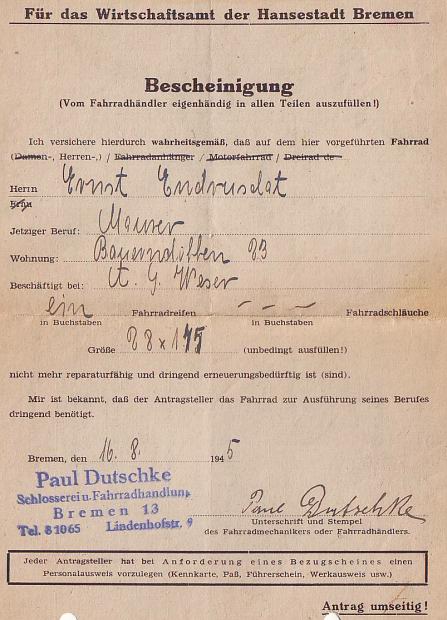 Für das Wirtschaftsamt der Hansestadt Bremen
Bescheinigung
(Vom Fahrradhändler eigenhändig in allen Teilen auszufüllen!)
Ich versichere hierdurch wahrheitsgemäß, daß auf dem hier vorgeführten Fahrrad
(Damen-, Herren-,) / Fahrradanhänger / Motorfahrrad / Dreirad de
Herrn Ernst Endruschat
Frau
Jetziger Beruf: Maurer
Wohnung: 83
Beschäftigt bei: A. G. Weser
ein Fahrradreifen - - - Fahrradschläuche
in Buchstaben in Buchstaben
Größe 28 x 1 75 (unbedingt ausfüllen!)
nicht mehr reparaturfähig und dringend erneuerungsbedürftig ist (sind).
Mir ist bekannt, daß der Antragsteller das Fahrrad zur Ausführung seines Berufes
dringend benötigt.
Bremen, den 16. 8. 1945
Paul Dutschke
Schlosserei u. Fahrradhandlung
Bremen 13
Tel. 81065 Lindenhofstr. 9
Paul Dutschke
Unterschrift und Stempel
des Fahrradmechanikers oder Fahrradhändlers.
Jeder Antragsteller hat bei Anforderung eines Bezugscheines einen
Personalausweis vorzulegen (Kennkarte, Paß, Führerschein, Werkausweis usw.)
Antrag umseitig!